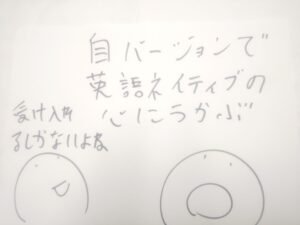 自バージョンで
英語ネイティブの
心にうかぶ
受け入れ
るしかないよな